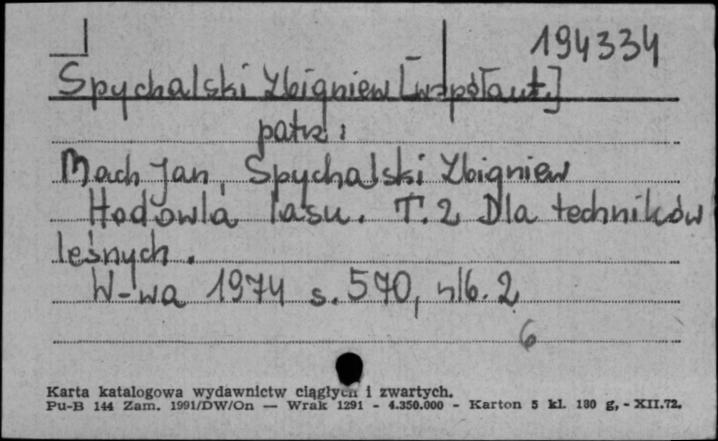 194334
Spychalski Zbigniew [współaut.]
patrz:
Mach Jan, Spychalski Zbigniew
Hodowla lasu. T.2 Dla techników
leśnych.
W-wa 1974 s. 570, nlb. 2
6
Karta katalogowa wydawnictw ciągłych i zwartych.
Pu-B 144 Zam. 1991/DW/On — Wrak 1291 - 4.350.000 - Karton 5 kl. 180 g, - XII.72.